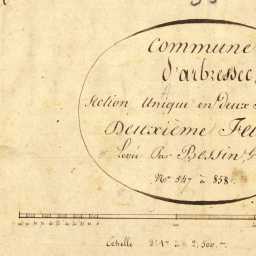 Commune
d'arbressec
Section Unique en deux
Deuxième Feu
Levée Par Bessin G
Nos 547 à 858
Echelle de 1 à 2,500.